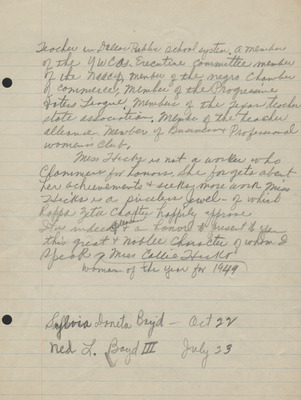 Teacher in Dallas Public School system. A member
of the YWCA. Executive Committee member
of the NAACP, member of the negro Chamber
of commerce, Member of the Progressive
Voters League, Member of the Texas teachers
state association. Member of the teacher
alliance. Member of Business & Professional
womens Club.
Miss Hicks is not a worker who
Clammers for honors. She forgets about
her achievements & seeks more work Miss
Hicks is a priceless jewel - of which
Kappa Zeta Chapter happily
indeed a honor to present to you
this great & noble character of whom I
speak Miss Callie Hicks
Woman of the year for 1949
Sylvia Doneta Boyd - Oct 22
Ned L. Boyd III July 23